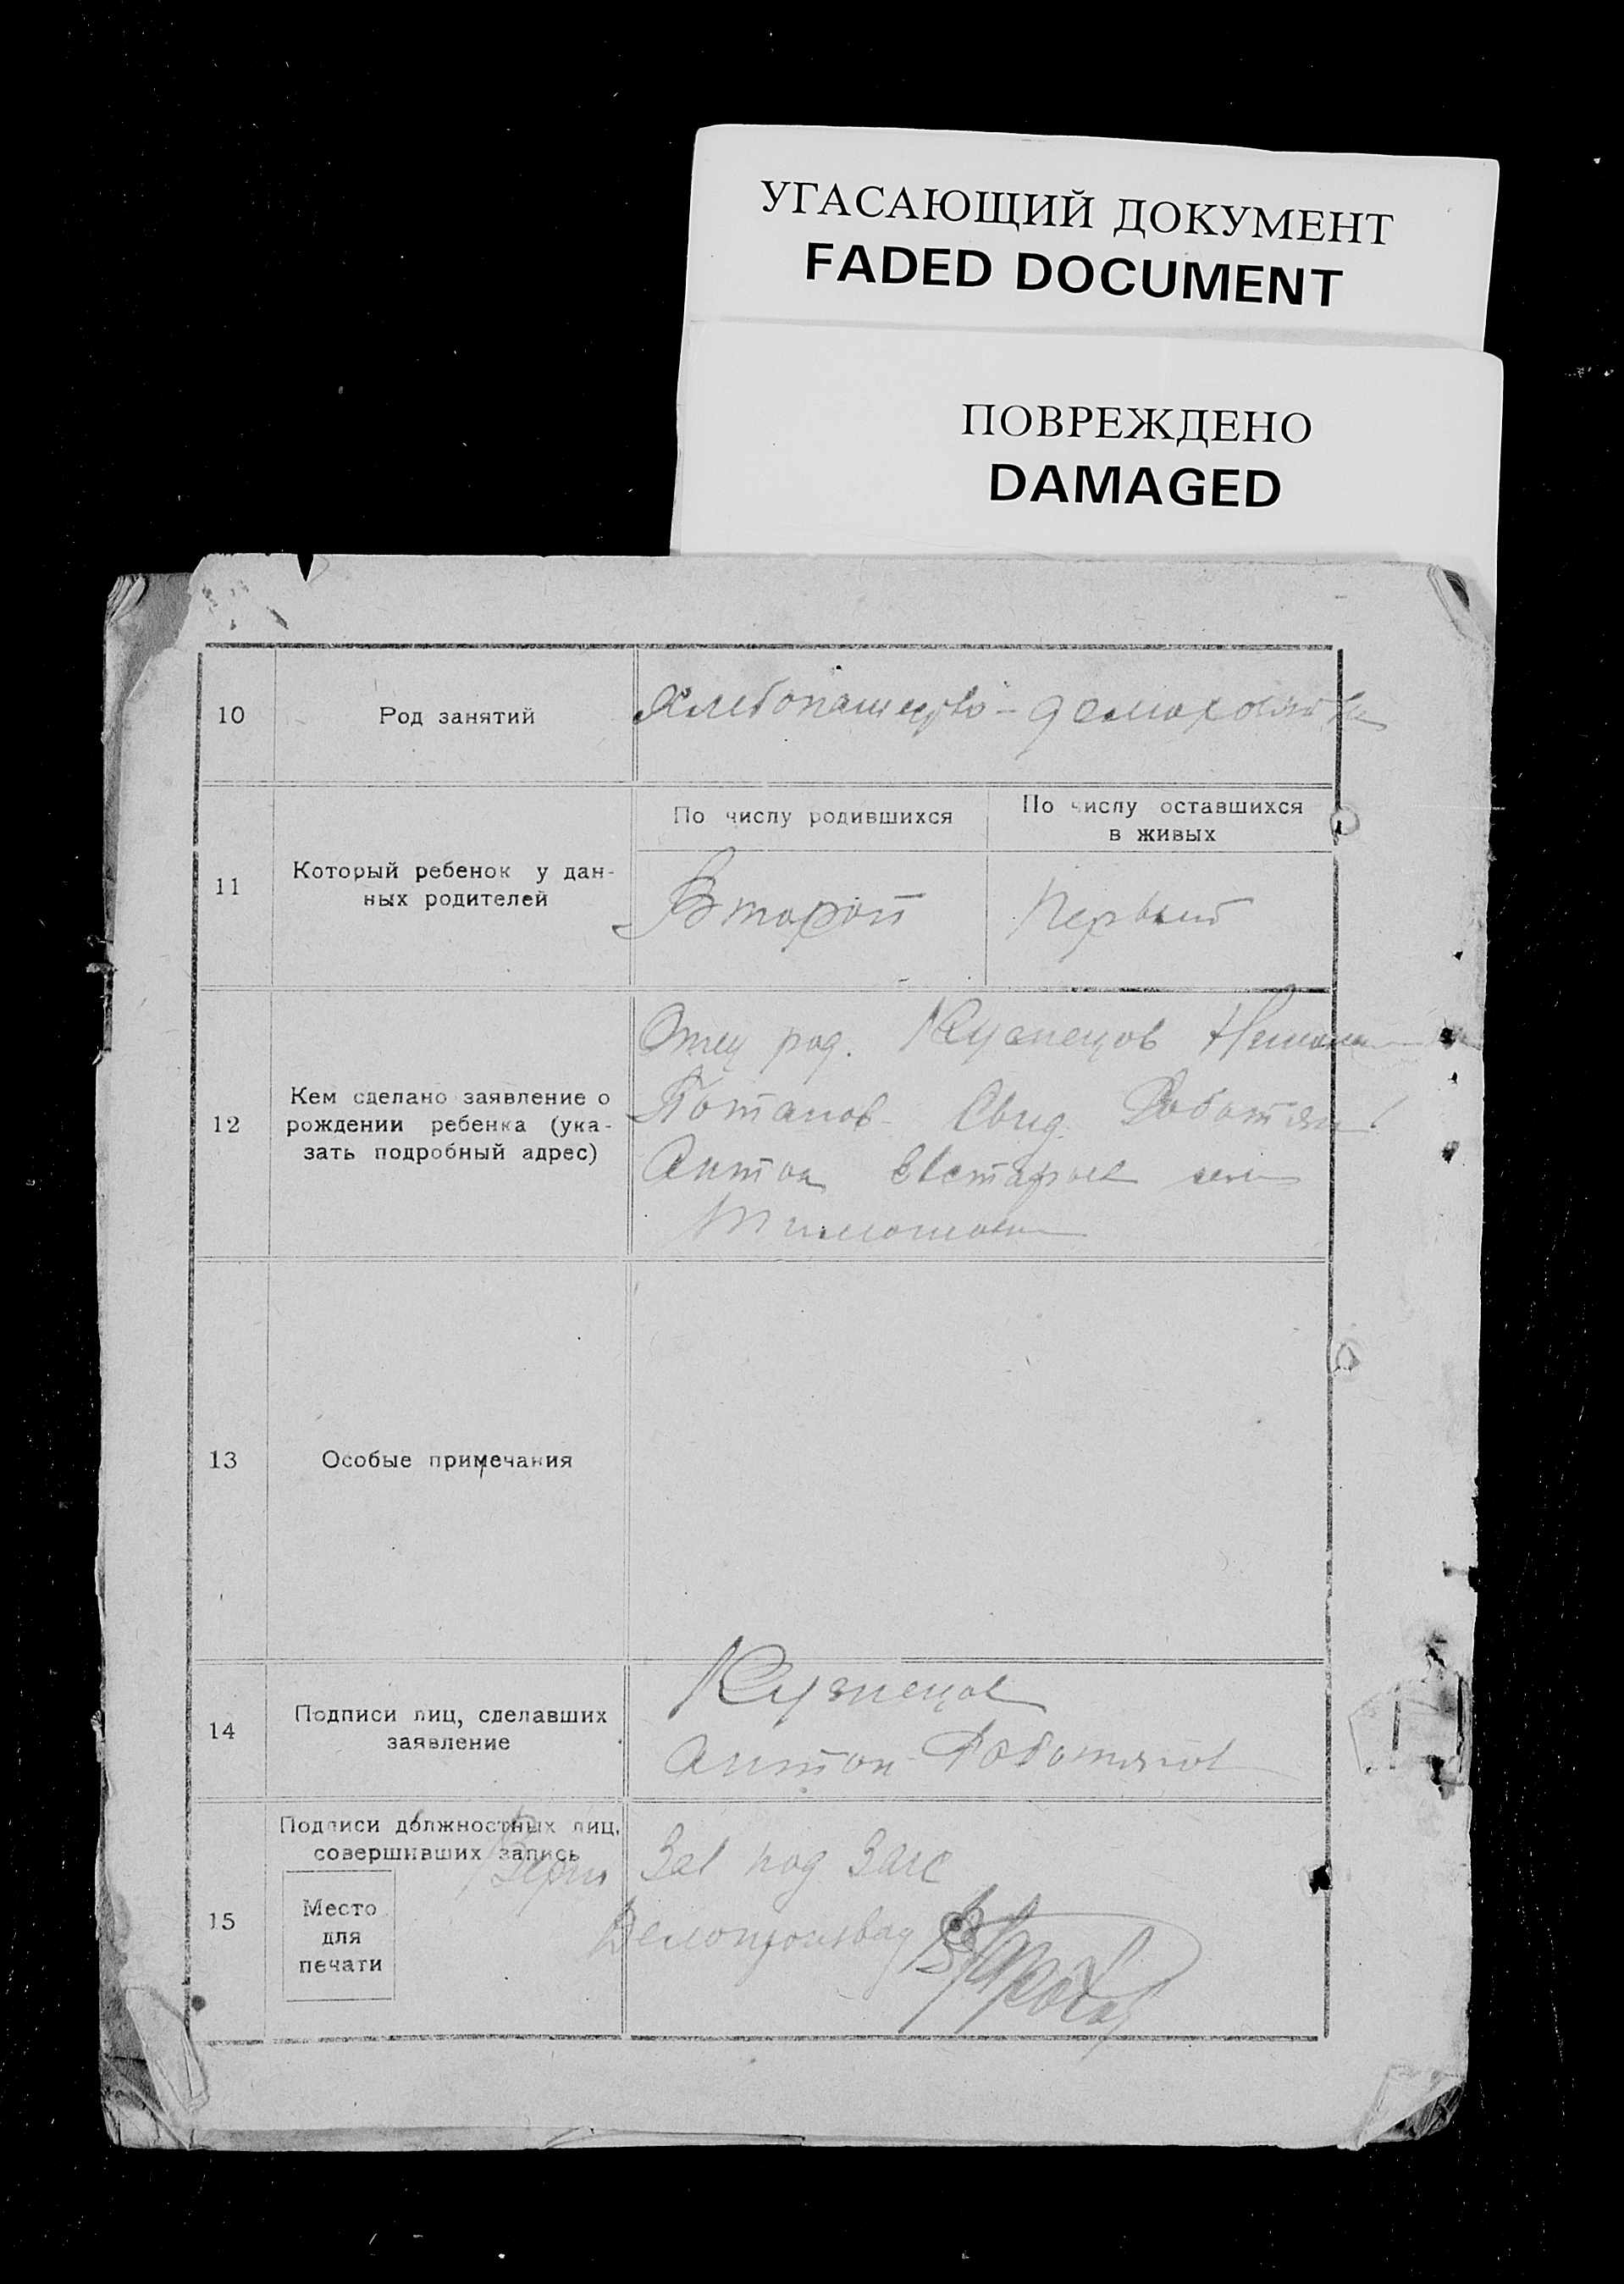 УГАСАЮЩИЙ ДОКУМЕНТ
FADED DOCUMENT
ПОВРЕЖДЕНО
DAMAGED
10
Род занятий
Хлебопашество - домохозяйка
11
Который ребенок у дан-
ных родителей
По числу родившихся
Второй
По числу оставшихся
в живых
Первый
12
Кем сделано заявление о
рождении ребенка (ука-
зать подробный адрес)
Отец род. Кузнецов
Потапов. Свид.
Антон
13
Особые примечания
14
Подписи лиц, сделавших
заявление
Кузнецов
Антон Работягов
15
Подписи должностных лиц,
совершивших запись
Место
для
печати
Верно
Зав под Загс
Делопроизвод